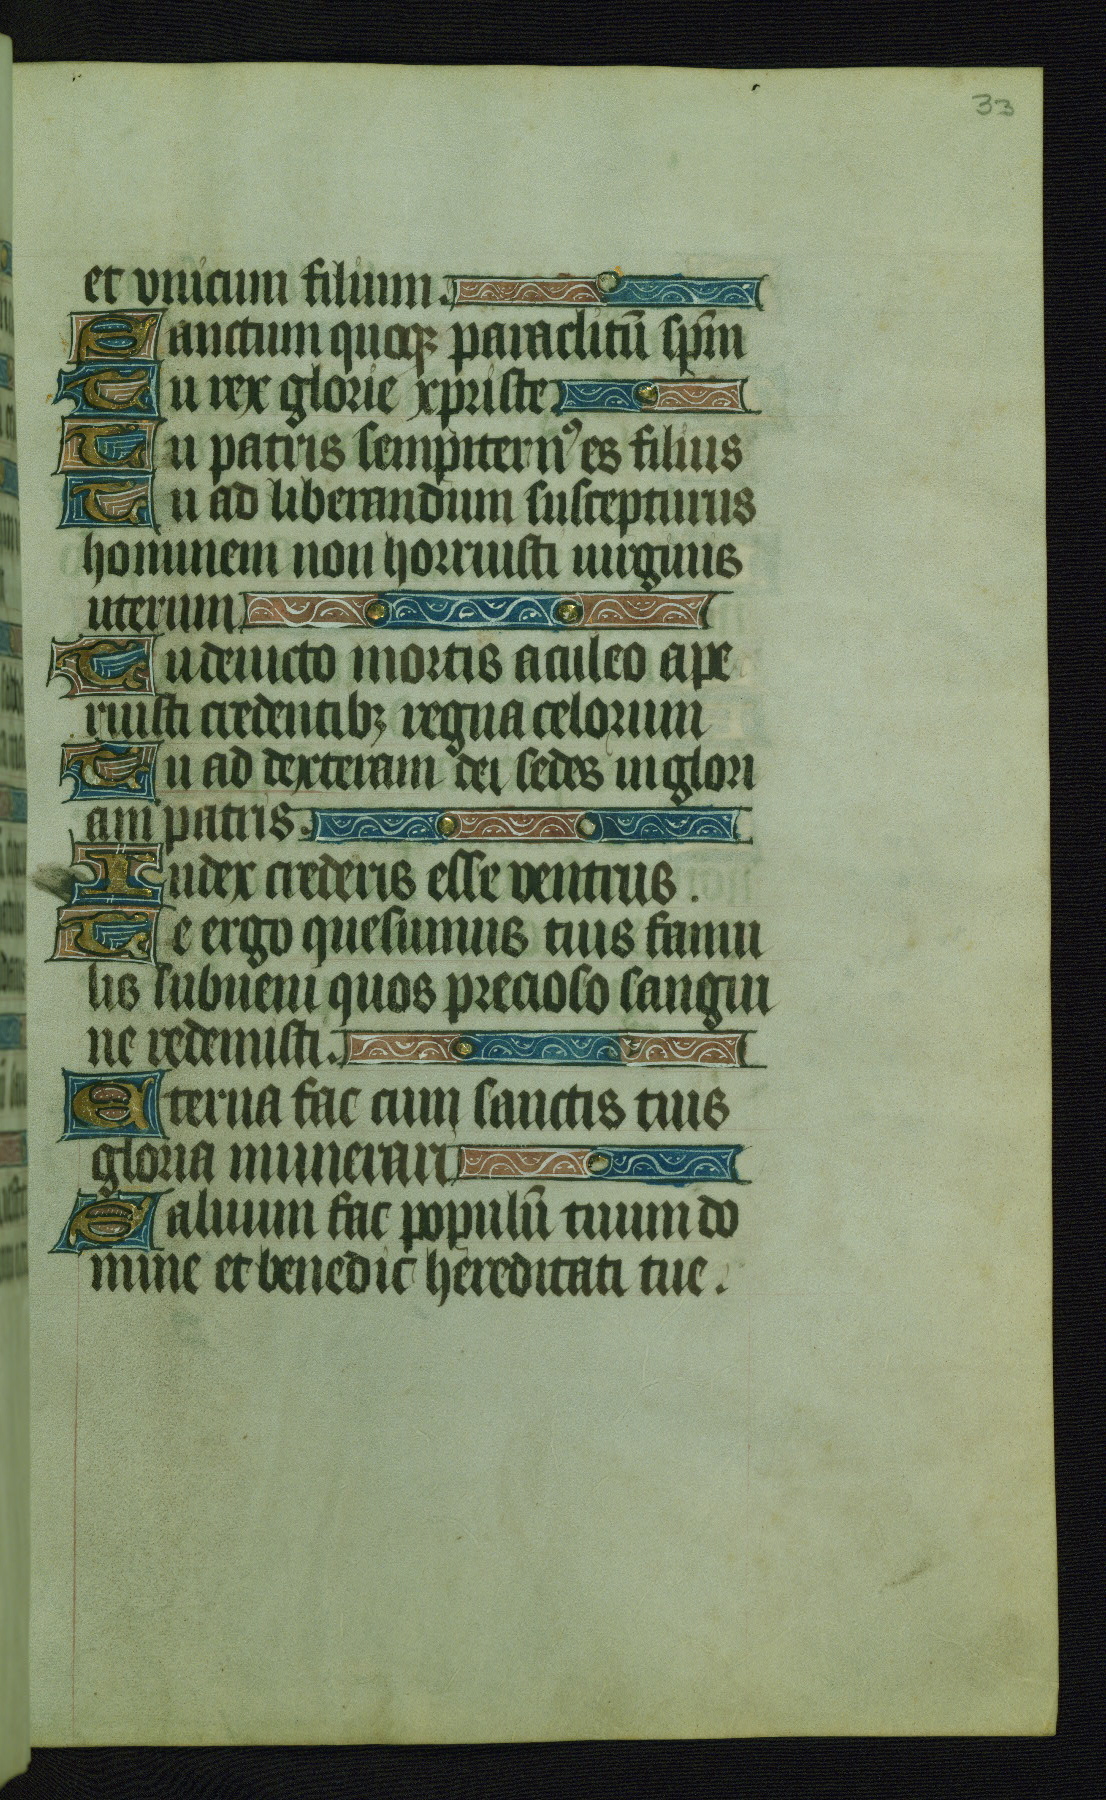 33
et vnicum filium.
Sanctum quoqꝫ paraclitū sp̄m
Tu rex glorie xpriste
Tu patris sempiternꝰ es filius
Tu ad liberandum suscepturus
hominem non horruisti uirginis
uterum
Tu deuicto mortis aculeo ape
ruisti credentibꝫ regna celorum
Tu ad dexteram dei sedes in glori
am patris.
Iudex crederis esse venturus.
Te ergo quesumus tuis famu
lis subueni quos precioso sangui
ne redemisti.
Eterna fac cum sanctis tuis
gloria munerari
Saluum fac populū tuum do
mine et benedic hereditati tue.